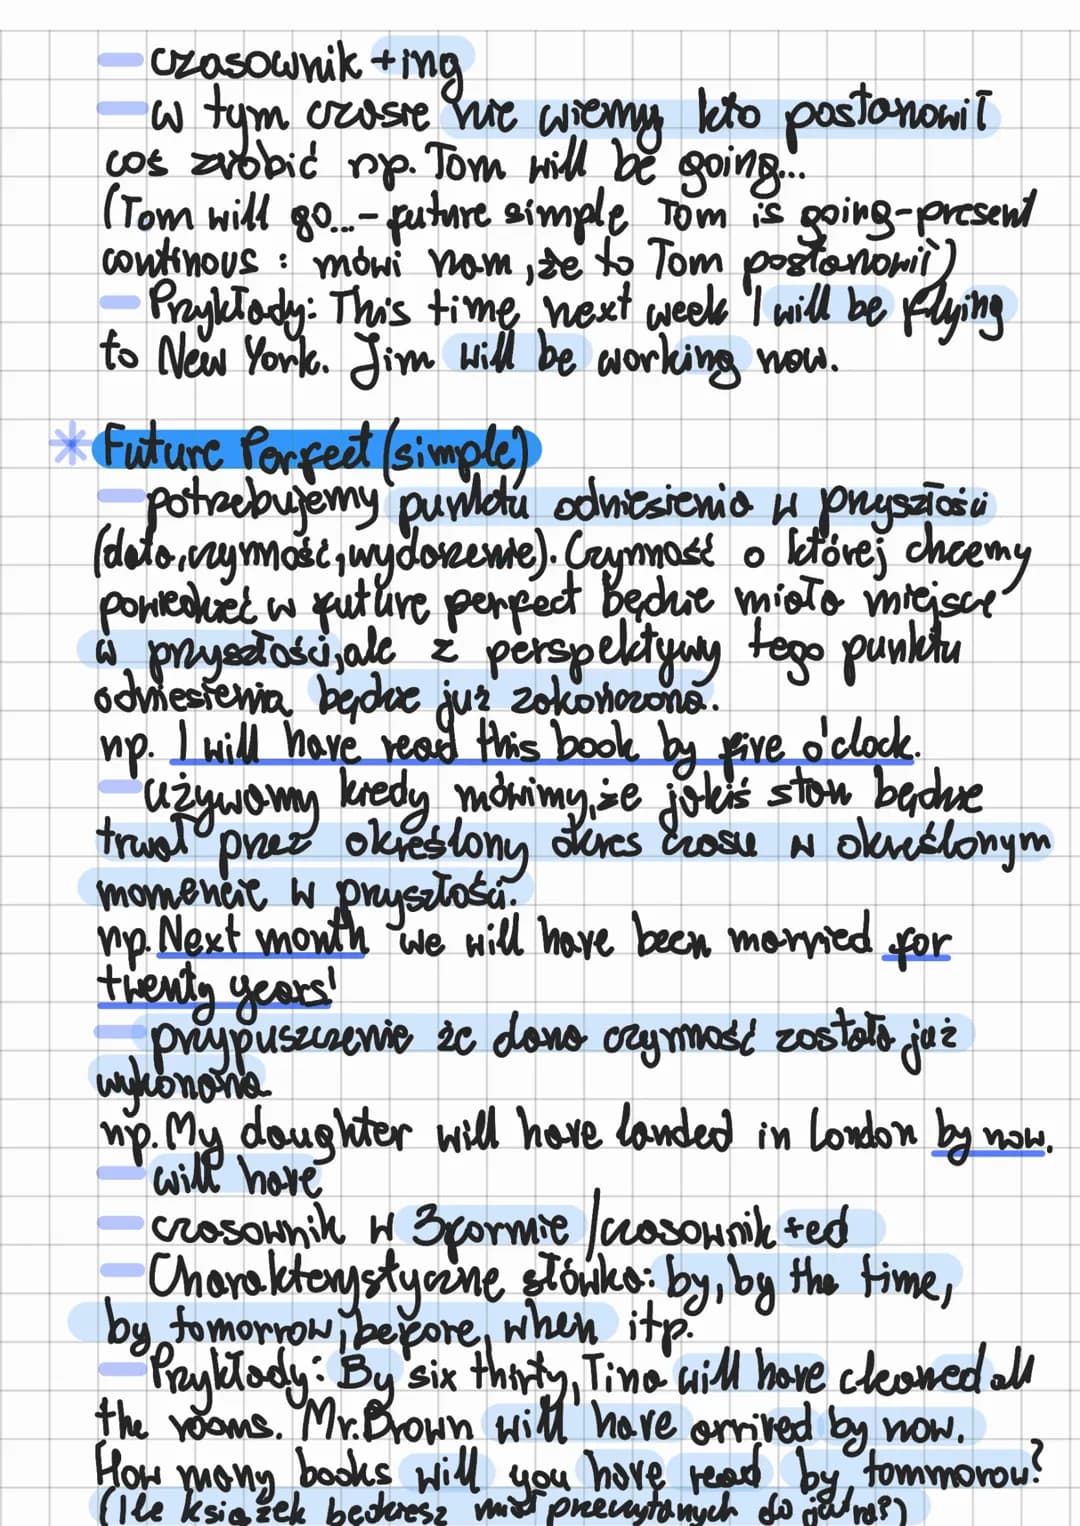 czasownik +ing
w tym czasie nie wiemy kto postanowił
coś zrobić np. Tom will be going...
(Tom will go...- future simple Tom is going-present
continous : mówi nam, że to Tom postanowił)
Przykłady: This time next week I will be flying
to New York. Jim will be working now.
* Future Perfect (simple)
potrzebujemy punktu odniesienia w przyszłości
(data, czynność, wydarzenie). Czynność o której chcemy
powiedzieć w future perfect będzie miała miejsce
w przyszłości, ale z perspektywy tego punktu
odniesienia będzie już zakończona.
np. I will have read this book by five o'clock.
używamy kiedy mówimy, że jakiś stan będzie
trwał przez określony okres czasu w określonym
momencie w przyszłości.
np. Next month we will have been married for
twenty years!
przypuszczenie że dana czynność została już
wykonana
np. My daughter will have landed in London by now.
will have
czasownik w 3 formie / czasownik +ed
Charakterystyczne słówka: by, by the time,
by tomorrow, before, when itp.
Przykłady: By six thirty, Tina will have cleaned all
the rooms. Mr. Brown will have arrived by now.
How many books will you have read by tommorow?
(Ile książek będziesz miał przeczytanych do jutra?)